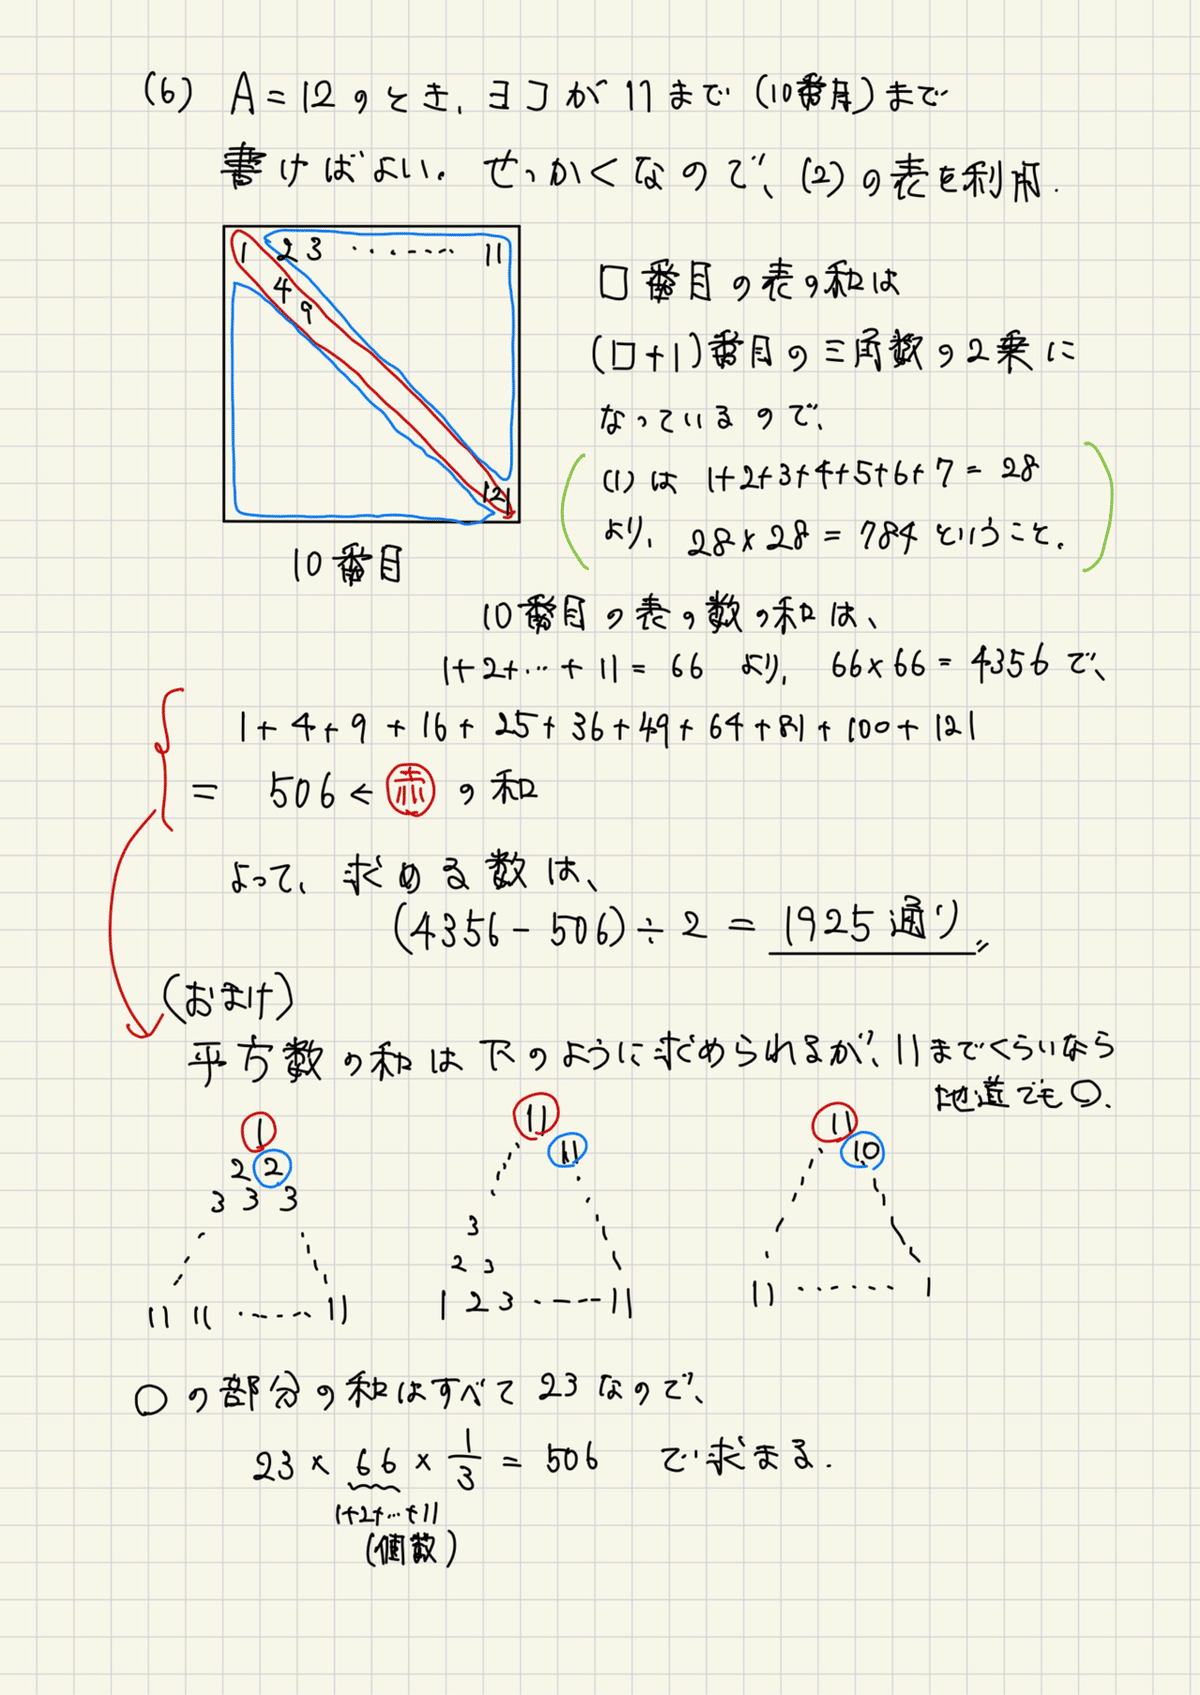 (6) A=12のとき、ヨコが11まで(10番目)まで
書けばよい。せっかくなので、(2)の表を利用.
1 2 3 ・・・・・・ 11
4
9
121
10番目
□番目の表の和は
(□+1)番目の三角数の2乗に
なっているので、
(1)は 1+2+3+4+5+6+7=28
より、28×28=784ということ.
10番目の表の数の和は、
1+2+…+11=66 より、66×66=4356で、
1+4+9+16+25+36+49+64+81+100+121
= 506 ← 赤 の和
よって、求める数は、
(4356-506)÷2 = 1925通り
(おまけ)
平方数の和は下のように求められるが、11までくらいなら
地道でも○.
1
2 2
3 3 3
11 11 ・・・・・・ 11
11
11
3
2 3
1 2 3 ・・・・・ 11
11
10
11 ・・・・・・ 1
○の部分の和はすべて23なので、
23 × 66 × 1/3 = 506 で求まる.
1+2+…+11
(個数)